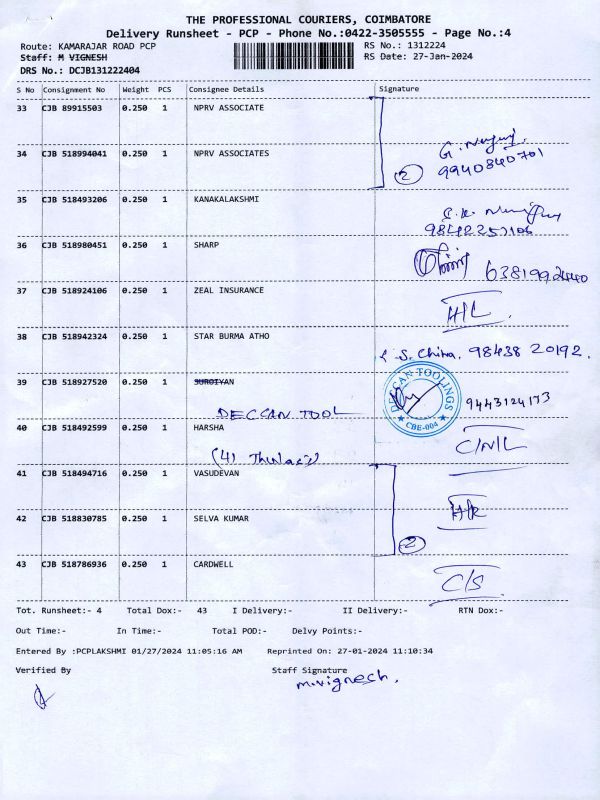 THE PROFESSIONAL COURIERS, COIMBATORE
Delivery Runsheet - PCP - Phone No.:0422-3505555 - Page No.:4
Route: KAMARAJAR ROAD PCP RS No.: 1312224
Staff: M VIGNESH RS Date: 27-Jan-2024
DRS No.: DCJB131222404
S No Consignment No Weight PCS Consignee Details Signature
33 CJB 89915503 0.250 1 NPRV ASSOCIATE
34 CJB 518994041 0.250 1 NPRV ASSOCIATES
2 9940840701
35 CJB 518493206 0.250 1 KANAKALAKSHMI
9842257106
36 CJB 518980451 0.250 1 SHARP
6381992440
37 CJB 518924106 0.250 1 ZEAL INSURANCE
38 CJB 518942324 0.250 1 STAR BURMA ATHO
S. China. 98438 20192.
39 CJB 518927520 0.250 1 SUROIYAN
DECCAN TOOL
DECCAN TOOLINGS
CBE-004
9443124173
40 CJB 518492599 0.250 1 HARSHA
C/N/L
41 CJB 518494716 0.250 1 VASUDEVAN
42 CJB 518830785 0.250 1 SELVA KUMAR
2
43 CJB 518786936 0.250 1 CARDWELL
C/S
Tot. Runsheet:- 4 Total Dox:- 43 I Delivery:- II Delivery:- RTN Dox:-
Out Time:- In Time:- Total POD:- Delvy Points:-
Entered By :PCPLAKSHMI 01/27/2024 11:05:16 AM Reprinted On: 27-01-2024 11:10:34
Verified By Staff Signature
m.vignesh.